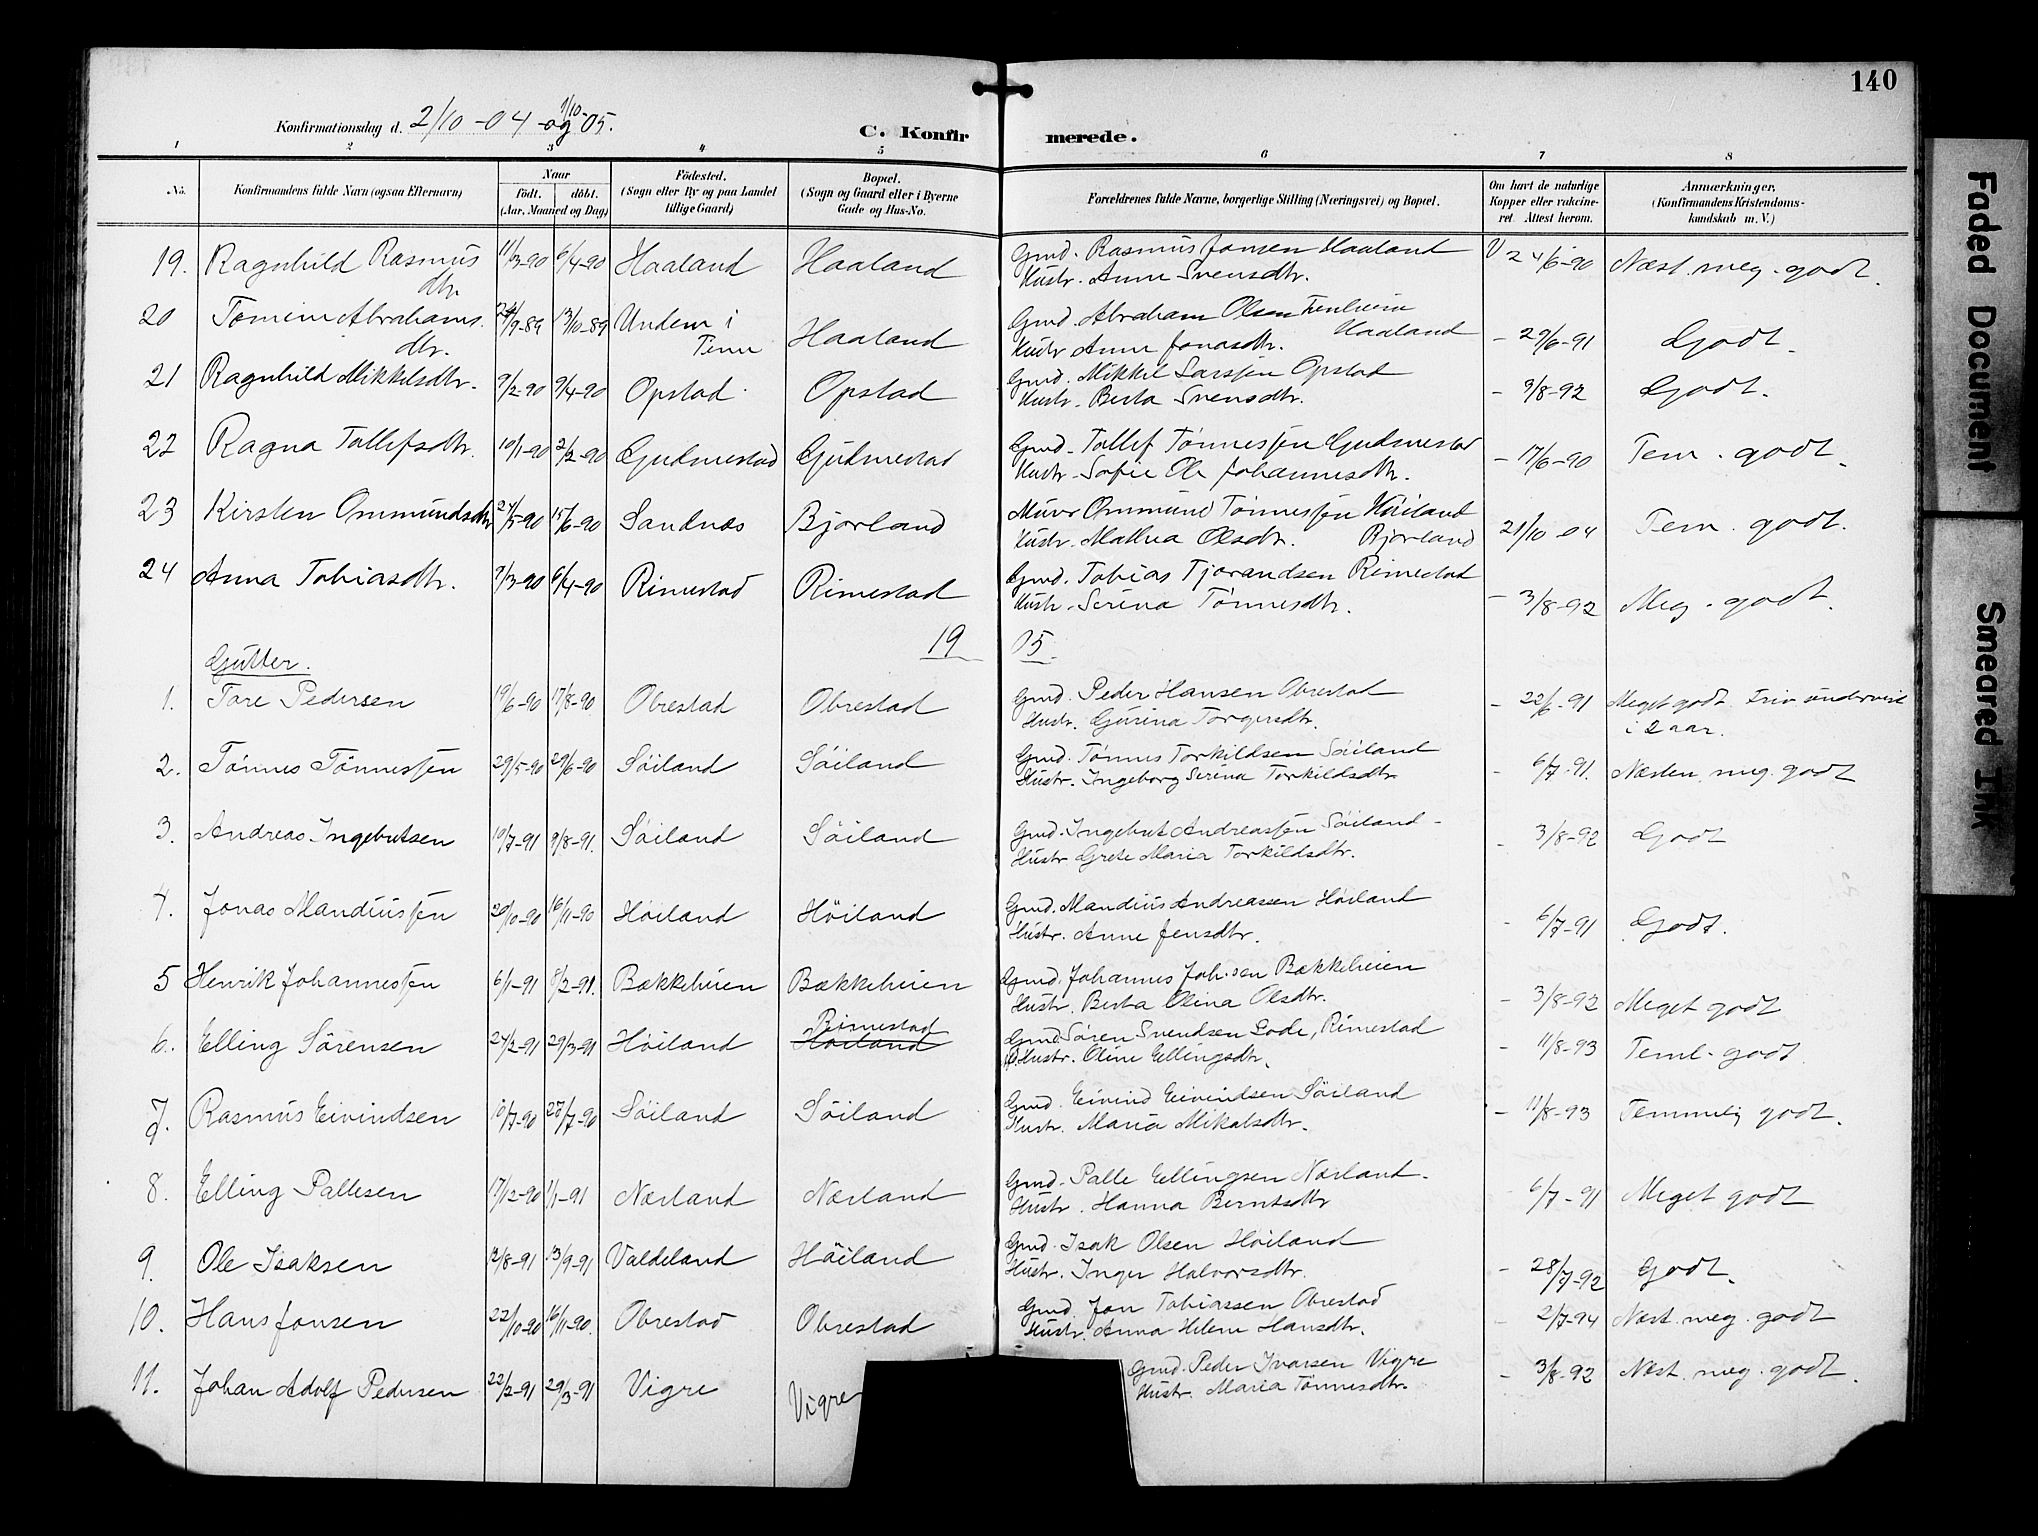 140
Konfirmationsdag d. 2/10-04 og 1/10 05.
C. Konfirmerede.
1 2 3 4 5 6 7 8
No. Konfirmandens fulde Navn (ogsaa Efternavn) Naar født. døbt. (Aar, Maaned og Dag) Fødested. (Sogn eller By og paa Landet tillige Gaard) Bopæl. (Sogn og Gaard eller i Byerne Gade og Hus-No. Forældrenes fulde Navne, borgerlige Stilling (Næringsvei) og Bopæl. Om havt de naturlige Kopper eller vakcineret. Attest herom. Anmærkninger. (Konfirmandens Kristendomskundskab m. V.)
19. Ragnhild Rasmus 11/3-90 6/4-90 Haaland Haaland Gmd. Rasmus Jonsen Haaland V 24/6-90 Næst. meg. godt.
dtr. Hustr. Anne Svensdtr.
20 Tomine Abrahams. 24/9-89 13/10-89 Undem i Haaland Gmd. Abraham Olsen Haaland - 29/6-91 Godt.
dtr. Hustr Anne Jonasdtr.
21 Ragnhild Mikkelsdtr. 9/2-90 9/4-90 Opstad Opstad Gmd. Mikkel Larssen Opstad - 9/8-92 Godt.
Hustr. Berta Svensdtr.
22 Ragna Tollefsdtr. 10/1-90 2/2-90 Gudmestad Gudmestad Gmd. Tollef Tønnessen Gudmestad - 17/6-90 Tem. godt.
Hustr. Sofie Ole Johannesdtr.
23 Kirsten Ommundsdtr 27/5-90 15/6-90 Sandnæs Bjorland Murer Ommund Tønnessen Høiland 21/10 04 Tem. godt.
Hustr. Mathea Olsdtr. Bjorland
24 Anna Tobiasdtr. 7/3-90 6/4-90 Rimestad Rimestad Gmd. Tobias Tjorandsen Rimestad - 3/8-92 Meg. godt.
Hustr. Serina Tønnesdtr.
19 05
Gutter.
1. Tore Pedersen 19/6-90 17/8-90 Obrestad Obrestad Gmd. Peder Hansen Obrestad - 22/6-91 Meget godt. Friv undervist
Hustr. Gurina Torgersdtr. i 2 aar.
2. Tønnes Tønnessen 29/5-90 29/6-90 Søiland Søiland Gmd. Tønnes Torkildsen Søiland - 6/7-91. Næsten meg. godt
Hustr. Ingeborg Serina Torkildsdtr
3. Andreas Ingebretsen 10/7-91 9/8-91. Søiland Søiland Gmd. Ingebret Andreassen Søiland - 3/8-92 Godt
Hustr Grete Maria Torkildsdtr.
4. Jonas Mandiussen 20/10-90 16/11-90 Høiland Høiland Gmd. Mandius Andreassen Høiland - 6/7-91 Godt.
Hustr. Anne Jensdtr.
5 Henrik Johannessen 6/1-91 8/2-91. Bækkeheien Bækkeheien Gmd. Johannes Joh.sen Bækkeheien - 3/8-92 Meget godt
Hustr. Berta Olina Olsdtr.
6. Elling Sørensen 24/2-91 29/3-91 Høiland Rimestad Høiland Gmd Søren Svendsen Lode, Rimestad - 11/8-93 Teml. godt
Hustr. Oline Ellingsdtr.
7. Rasmus Eivindsen 10/7-90 28/7-90 Søiland Søiland Gmd. Eivind Eivindsen Søiland - 11/8-93 Temmelig godt.
Hustr. Maria Mikalsdtr.
8. Elling Pallesen 17/12-90 1/1-91 Nærland Nærland Gmd. Palle Ellingsen Nærland. 6/7-91 Meget godt
Hustr. Hanna Berntsdtr
9. Ole Isaksen 12/8-91 13/9-91 Valdeland Høiland Gmd. Isak Olsen Høiland - 28/7-92 Godt.
Hustr. Inger Halvorsdtr.
10. Hans Jonsen 22/10-90 16/11-90. Obrestad Obrestad Gmd. Jon Tobiassen Obrestad - 2/7-94 Næst. meg. godt
Hustr. Anna Helene Hansdtr.
11. Johan Adolf Pedersen 22/2-91 29/3-91 Vigre Vigre Gmd. Peder Ivarsen Vigre - 3/8-92 Næst. meg. godt.
Hustr. Maria Tønnesdtr.
Faded Document
Smeared Ink